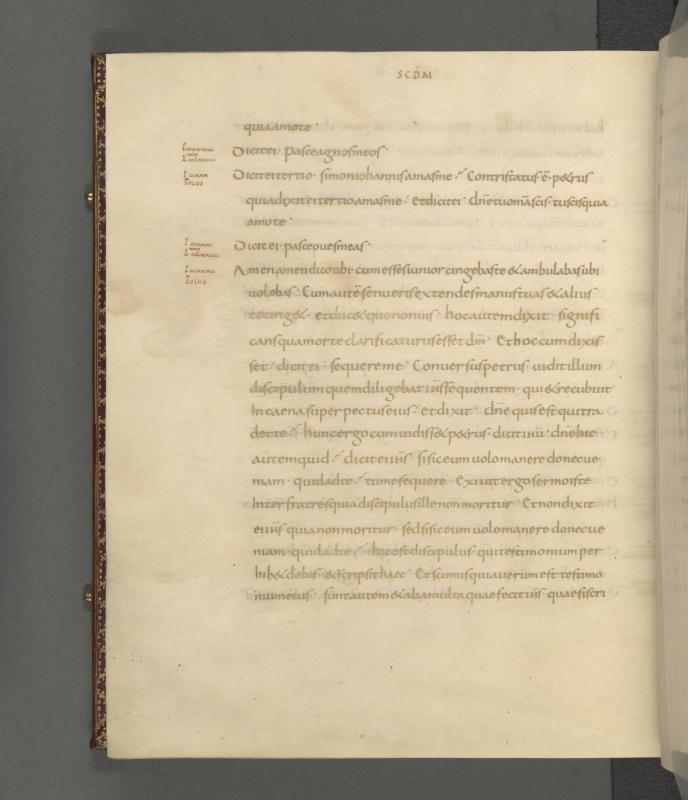 SCDM
quia amote ·
Dicit ei · Pasce agnos meos ·
Dicit ei tertio · simon iohannis amas me · Contristatus ē · petrus
SOLUS
quia dixit ei tertio amas me · et dicit ei · dn̄e tu om̄a scis · tu scis quia
amo te ·
Dicit ei · pasce oues meas ·
Amen amen dico tibi · cum esses iunior cingebas te & ambulabas ubi
SOLUS
uolebas · Cum autē senueris extendes manus tuas & alius
te cinget · et ducet quo non uis · hoc autem dixit · signifi
cans qua morte clarificaturus esset dm̄ · Et hoc cum dixis
set · dicit ei · sequere me · Conuersus petrus · uidit illum
discipulum quem diligebat ih̄s sequentem · qui & recubuit
In caena super pectus eius · et dixit · dn̄e quis est qui tra
det te · hunc ergo cum uidisset petrus · dicit ih̄u · dn̄e hic
autem quid · dicit ei ih̄s · si sic eum uolo manere donec ue
niam · quid ad te · tu me sequere · Exiuit ergo sermo iste
Inter fratres quia discipulus ille non moritur · Et non dixit
ei ih̄s quia non moritur · sed si sic eum uolo manere donec ue
niam · quid ad te · hic est discipulus · qui testimonium per
hibet de his · & scripsit haec · Et scimus quia uerum est testimo
nium eius · sunt autem & alia multa quae fecit ih̄s · quae si scri